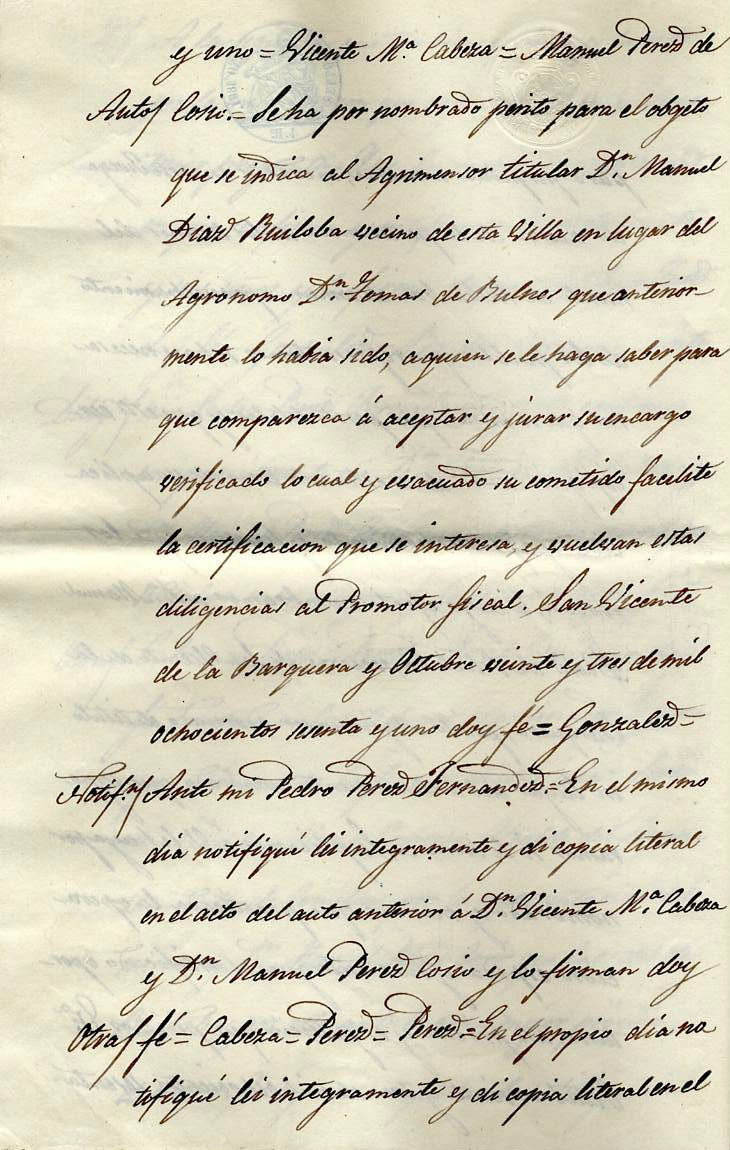 y uno = Vicente M.ª Cabeza = Manuel Perez de
Auto/ Cosio.= Se ha por nombrado perito para el obgeto
que se indica al Agrimensor titular D.n Manuel
Diaz Ruiloba vecino de esta Villa en lugar del
Agronomo D.n Tomas de Bulnes que anterior-
mente lo habia sido, a quien se le haga saber para
que comparezca á aceptar y jurar su encargo
verificado lo cual y evacuado su cometido facilite
la certificacion que se interesa, y vuelvan estas
diligencias al Promotor fiscal. San Vicente
de la Barquera y Octubre veinte y tres de mil
ochocientos sesenta y uno doy fé = Gonzalez =
Notif.n/ Ante mi Pedro Perez Fernandez = En el mismo
dia notifiqué lei integramente y di copia literal
en el acto del auto anterior á D.n Vicente M.ª Cabeza
y D.n Manuel Perez Cosio y lo firman doy
Otra/ fé = Cabeza = Perez = Perez = En el propio dia no
tifiqué lei integramente y di copia literal en el